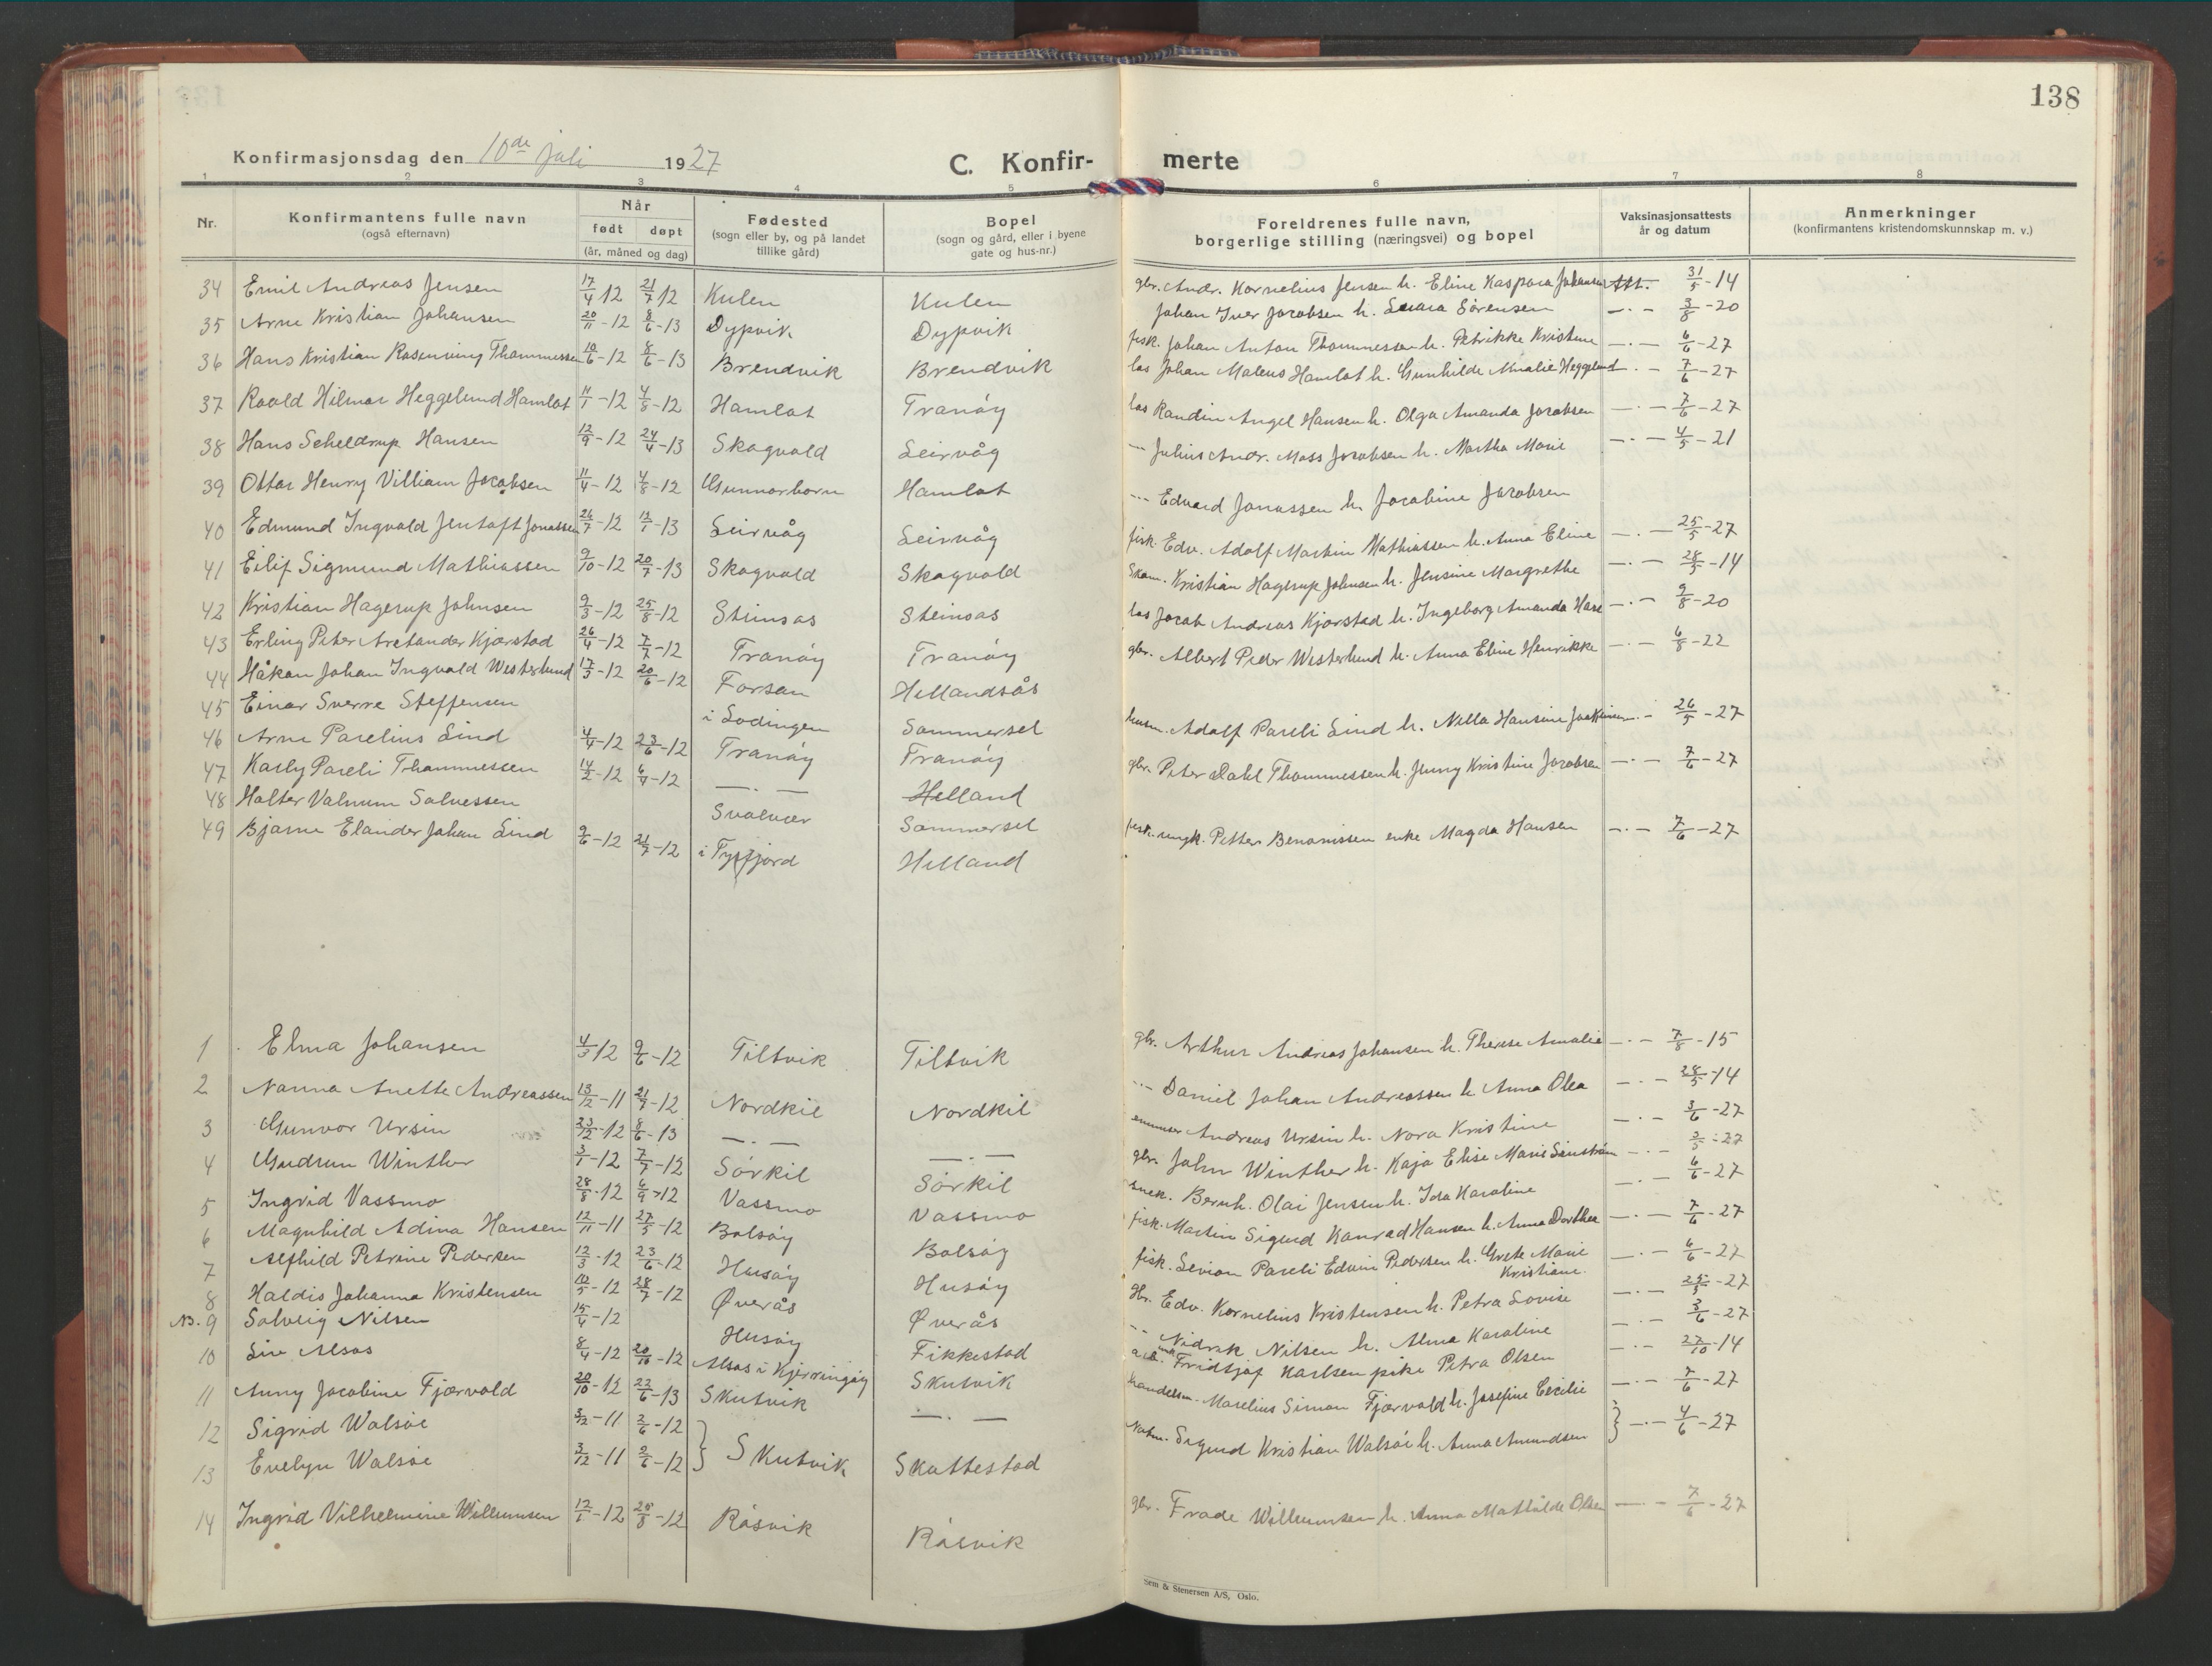 138
Konfirmasjonsdag den 10de juli 1927
C. Konfir- merte
1 2 3 4 5 6 7 8
Nr. Konfirmantens fulle navn (også efternavn) Når født døpt (år, måned og dag) Fødested (sogn eller by, og på landet tillike gård) Bopel (sogn og gård, eller i byene gate og hus-nr.) Foreldrenes fulle navn, borgerlige stilling (næringsvei) og bopel Vaksinasjonsattests år og datum Anmerkninger (konfirmantens kristendomskunnskap m. v.)
34 Emil Andreas Jensen 17/4 12 21/7 12 Kulen Kulen gbr. Andr. Kornelius Jensen h. Eline Kaspara Johansen Att. 31/5-14
35 Arne Kristian Johansen 20/11-12 8/6-13 Dypvik Dypvik Johan Iver Jacobsen h. Sørensen —.— 3/8-20
36 Hans Kristian Rosenving Thommessen 10/6-12 8/6-13 Brendvik Brendvik fisk. Johan Anton Thommessen h. Petrikke Kristine —.— 6/6-27
37 Roald Hilmar Heggelund Hamlot 11/1-12 4/8-12 Hamlot Tranøy los Johan Mateus Hamlot h. Gunhilde Amalie Heggelund —.— 7/6-27
38 Hans Scheldrup Hansen 12/9-12 24/4-13 Skogvold Leirvåg los Randin Angel Hansen h. Olga Amanda Jacobsen —.— 7/6-27
39 Ottar Henry Villiam Jacobsen 11/4-12 4/8-12 Gunnarborn Hamlot —.— Julius Andr. Moss Jacobsen h. Martha Marie —.— 4/5-21
40 Edmund Ingvald Jentoft Jonassen 26/7-12 12/1-13 Leirvåg Leirvåg —.— Edvard Jonassen h. Jacobine Jacobsen
41 Eilif Sigmund Mathiassen 9/10-12 20/7-13 Skogvold Skogvold fisk. Edv. Adolf Martin Mathiassen h. Anna Eline —.— 25/5-27
42 Kristian Hagerup Johnsen 9/3-12 25/8-12 Steinsas Steinsas Skom. Kristian Hagerup Johnsen h. Jensine Margrethe —.— 28/5-14
43 Erling Peter Aretander Kjørstad 26/4-12 7/7-12 Tranøy Tranøy los Jacob Andreas Kjørstad h. Ingeborg Amanda —.— 9/8-20
44 Håkon Johan Ingvald Westerlund 17/3-12 20/6-12 Forsan Hellandsås gbr. Albert Peder Westerlund h. Anna Eline Henrikke —.— 6/8-22
45 Einar Sverre Steffensen i Lødingen Sommersel
46 Arne Parelius Lind 4/4-12 23/6-12 Tranøy Tranøy husm. Adolf Pareli Lind h. Nella Hansine —.— 26/5-27
47 Karly Pareli Thommessen 14/2-12 6/4-12 —.— Helland gbr. Peter Dahl Thommessen h. Jenny Kristine Jacobsen —.— 7/6-27
48 Halter Valnum Salvessen Svolvær Sommersel
49 Bjarne Elander Johan Lind 9/6-12 21/7-12 i Tysfjord Helland fisk. ungk. Petter Benonissen enke Magda Hansen —.— 7/6-27
1 Elma Johansen 4/3 12 9/6-12 Tiltvik Tiltvik gbr. Arthur Andreas Johansen h. Therese Amalie —.— 7/8-15
2 Nanna Anette Andreassen 13/12-11 21/7-12 Nordkil Nordkil —.— Daniel Johan Andreassen h. Anna Olea —.— 28/5-14
3 Gunvor Ursin 23/12-12 8/6-13 —.— —.— Andreas Ursin h. Nora Kristine —.— 3/6-27
4 Gudrun Winther 3/1-12 7/7-12 Sørkil Sørkil gbr. John Winther h. Kaja Elise Marie —.— 3/5-27
5 Ingrid Vassmo 28/8-12 6/9-12 Vassmo Vassmo snek. Bernh. Olai Jensen h. Ida Karoline —.— 6/6-27
6 Magnhild Adina Hansen 12/11-11 27/5-12 Bolsøy Bolsøy fisk. Martin Sigurd Konrad Hansen h. Anna Dorthea —.— 7/6-27
7 Alfhild Petrine Pedersen 12/3-12 23/6-12 Husøy Husøy fisk. Sevion Pareli Edvin Pedersen h. Grete Marie Kristiane —.— 6/6-27
8 Haldis Johanna Kristensen 10/5-12 28/7-12 Øverås Øverås gbr. Edv. Kornelius Kristensen h. Petra Lovise —.— 25/5-27
NB. 9 Solveig Nilsen 15/4-12 Husøy Fikkestad —.— Nidrek Nilsen h. Alma Karoline —.— 3/6-27
10 Liv Alsos 8/4-12 20/10-12 Alsos i Kjerringøy Skutvik arb. Fridtjof Karlsen pike Petra Olsen —.— 27/10-14
11 Anny Jacobine Fjærvold 20/10-12 22/6-13 Skutvik —.— Handelsm. Marelius Simon Fjærvold h. Josefine Cecilie —.— 7/6-27
12 Sigrid Walsøe 3/12-11 2/6-12 } Skutvik Skottestad Sigurd Kristian Walsøe h. Anna Amundsen } —.— 4/6-27
13 Evelyn Walsøe 3/12-11 2/6-12
14 Ingrid Vilhelmine Willumsen 12/1-12 25/8-12 Råsvik Råsvik gbr. Frode Willumsen h. Anna Mathilde Olsen —.— 7/6-27
Sem & Stenersen A/S, Oslo.